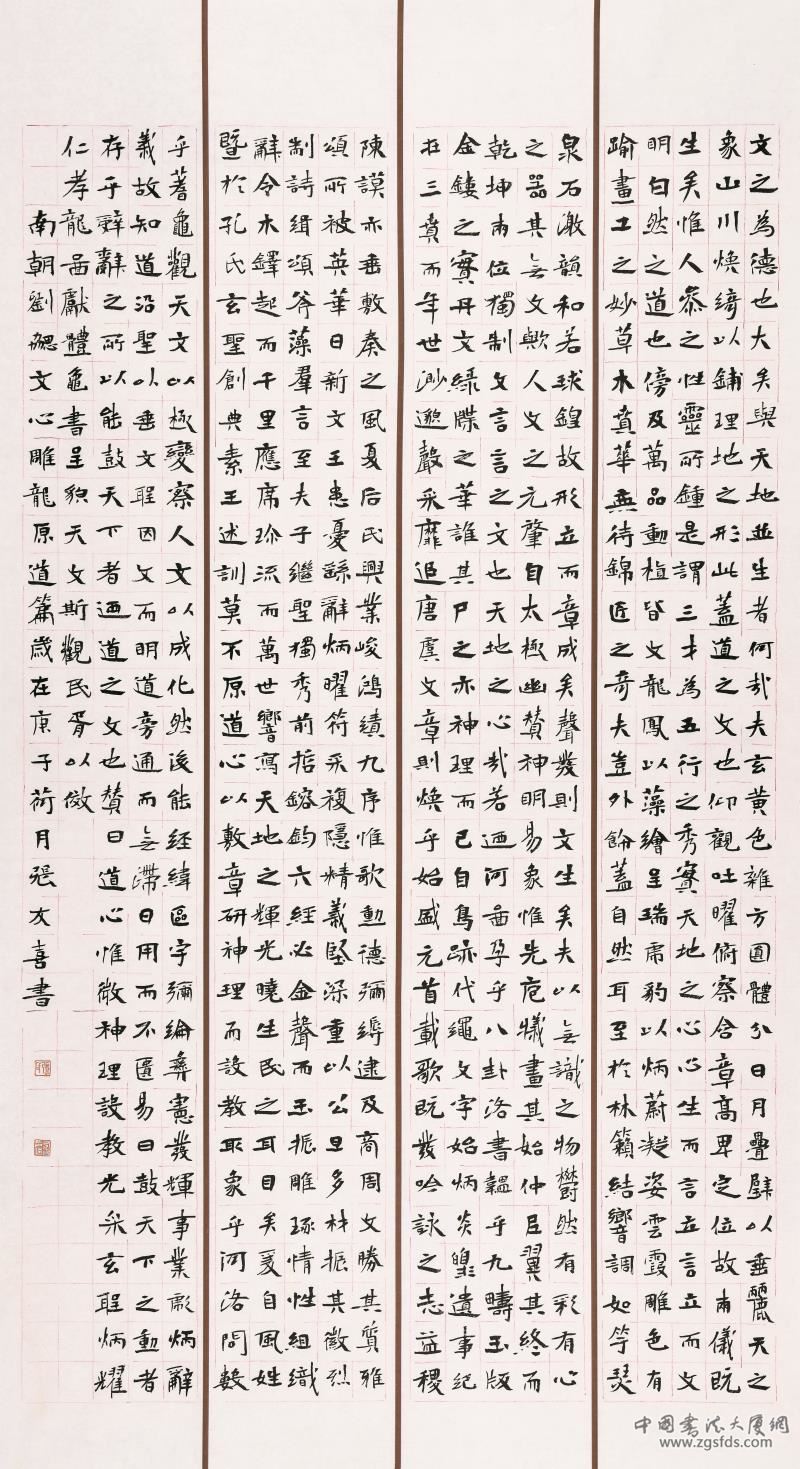 文之為德也大矣與天地並生者何哉夫玄黃色雜方圓體分日月疊璧以垂麗天之
象山川煥綺以鋪理地之形此蓋道之文也仰觀吐曜俯察含章高卑定位故兩儀既
生矣惟人參之性靈所鍾是謂三才為五行之秀實天地之心心生而言立言立而文
明自然之道也傍及萬品動植皆文龍鳳以藻繪呈瑞虎豹以炳蔚凝姿雲霞雕色有
踰畫工之妙草木賁華無待錦匠之奇夫豈外飾蓋自然耳至於林籟結響調如竽瑟
泉石激韻和若球鍠故形立而章成矣聲發則文生矣夫以無識之物鬱然有彩有心
之器其無文歟人文之元肇自太極幽贊神明易象惟先庖犧畫其始仲尼翼其終而
乾坤兩位獨制文言言之文也天地之心哉若迺河圖孕乎八卦洛書韞乎九疇玉版
金鏤之實丹文綠牒之華誰其尸之亦神理而已自鳥跡代繩文字始炳炎皞遺事紀
在三墳而年世渺邈聲采靡追唐虞文章則煥乎始盛元首載歌既發吟詠之志益稷
陳謨亦垂敷奏之風夏后氏興業峻鴻績九序惟歌勳德彌縟逮及商周文勝其質雅
頌所被英華日新文王患憂繇辭炳曜符采複隱精義堅深重以公旦多材振其徽烈
制詩緝頌斧藻羣言至夫子繼聖獨秀前哲鎔鈞六經必金聲而玉振雕琢情性組織
辭令木鐸起而千里應席珍流而萬世響寫天地之輝光曉生民之耳目矣爰自風姓
暨於孔氏玄聖創典素王述訓莫不原道心以敷章研神理而設教取象乎河洛問數
乎蓍龜觀天文以極變察人文以成化然後能經緯區宇彌綸彝憲發輝事業彪炳辭
義故知道沿聖以垂文聖因文而明道旁通而無滯日用而不匱易曰鼓天下之動者
存乎辭辭之所以能鼓天下者迺道之文也贊曰道心惟微神理設教光采玄聖炳耀
仁孝龍圖獻體龜書呈貌天文斯觀民胥以傚
南朝劉勰文心雕龍原道篇歲在庚子荷月張友喜書
中国书法大厦网
www.zgsfds.com